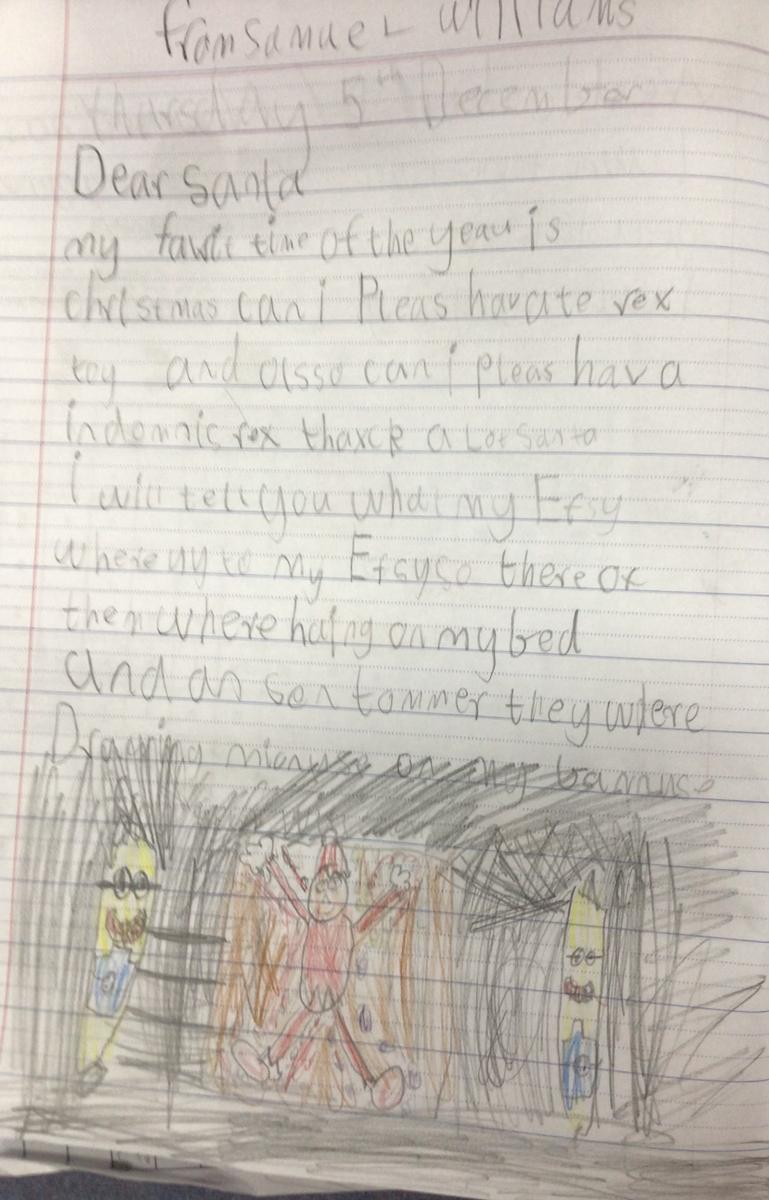 from Samuel Williams
Thursday 5th December
Dear Santa
my time of the year is
christmas can i Pleas hav a te rex
toy and alsso can i pleas hav a
indomnic rex a Lot Santa
i will tell you what my Efsy
where up to my Efsys there
then where hafng on my bed
and an son tommer they where
on my